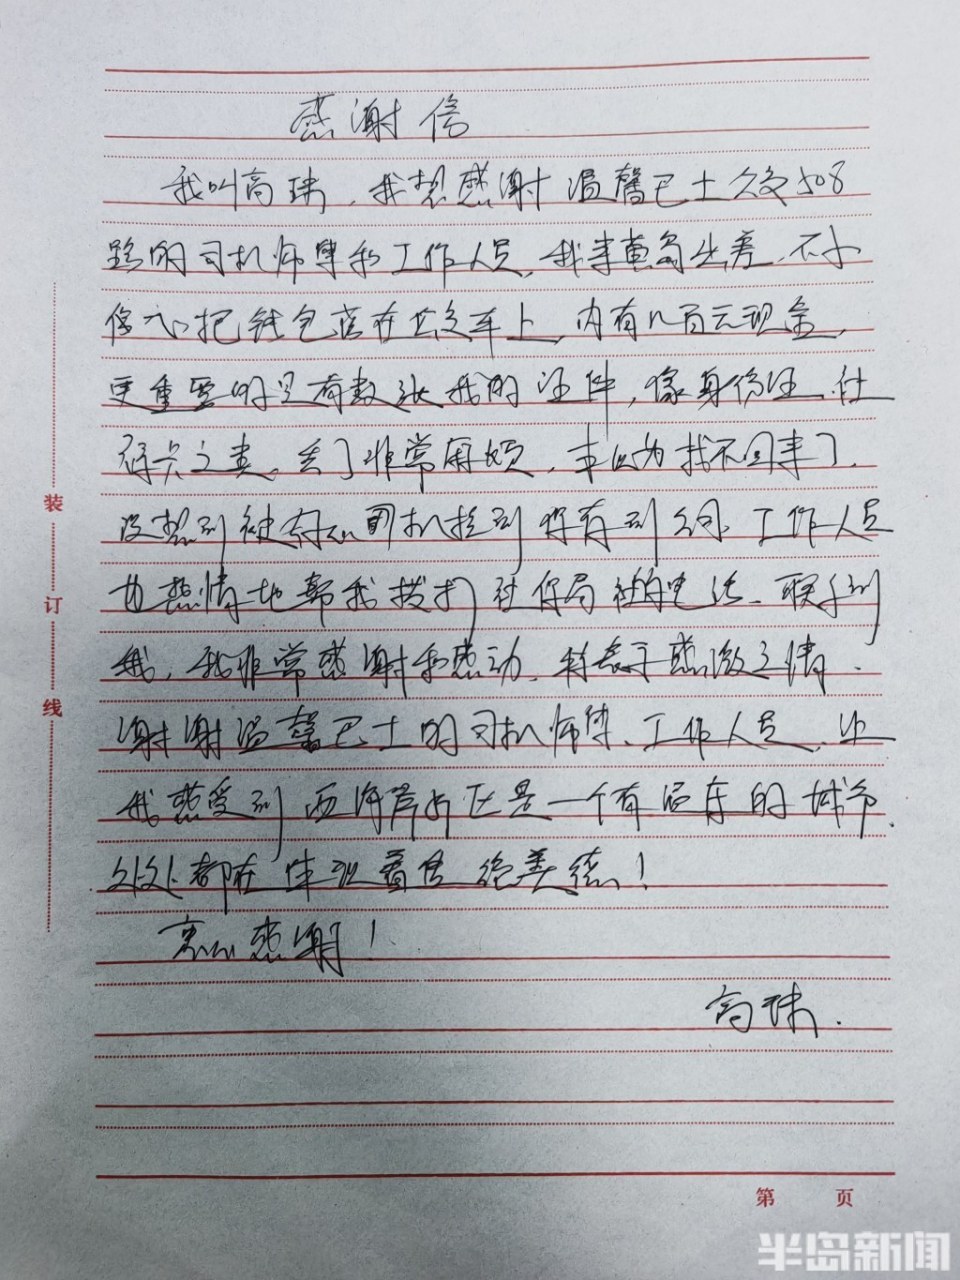 感谢信
我叫高珠，我想感谢温馨巴士公交508
路的司机师傅和工作人员，我来黄岛出差，不小
心把钱包落在公交车上，内有几百元现金，
更重要的是有数张我的证件，像身份证、社
保卡之类，丢了非常麻烦，本以为找不回来了，
没想到被好心司机捡到
也热情地帮我拨打社保局的电话，联系到
我，我非常感谢和感动，特表示感激之情．
谢谢温馨巴士的司机师傅、工作人员，让
我感受到西海岸新区是一个有温度的城市，
处处都在体现着传统美德！
衷心感谢！
高珠．
装
订
线
第 页
半岛新闻